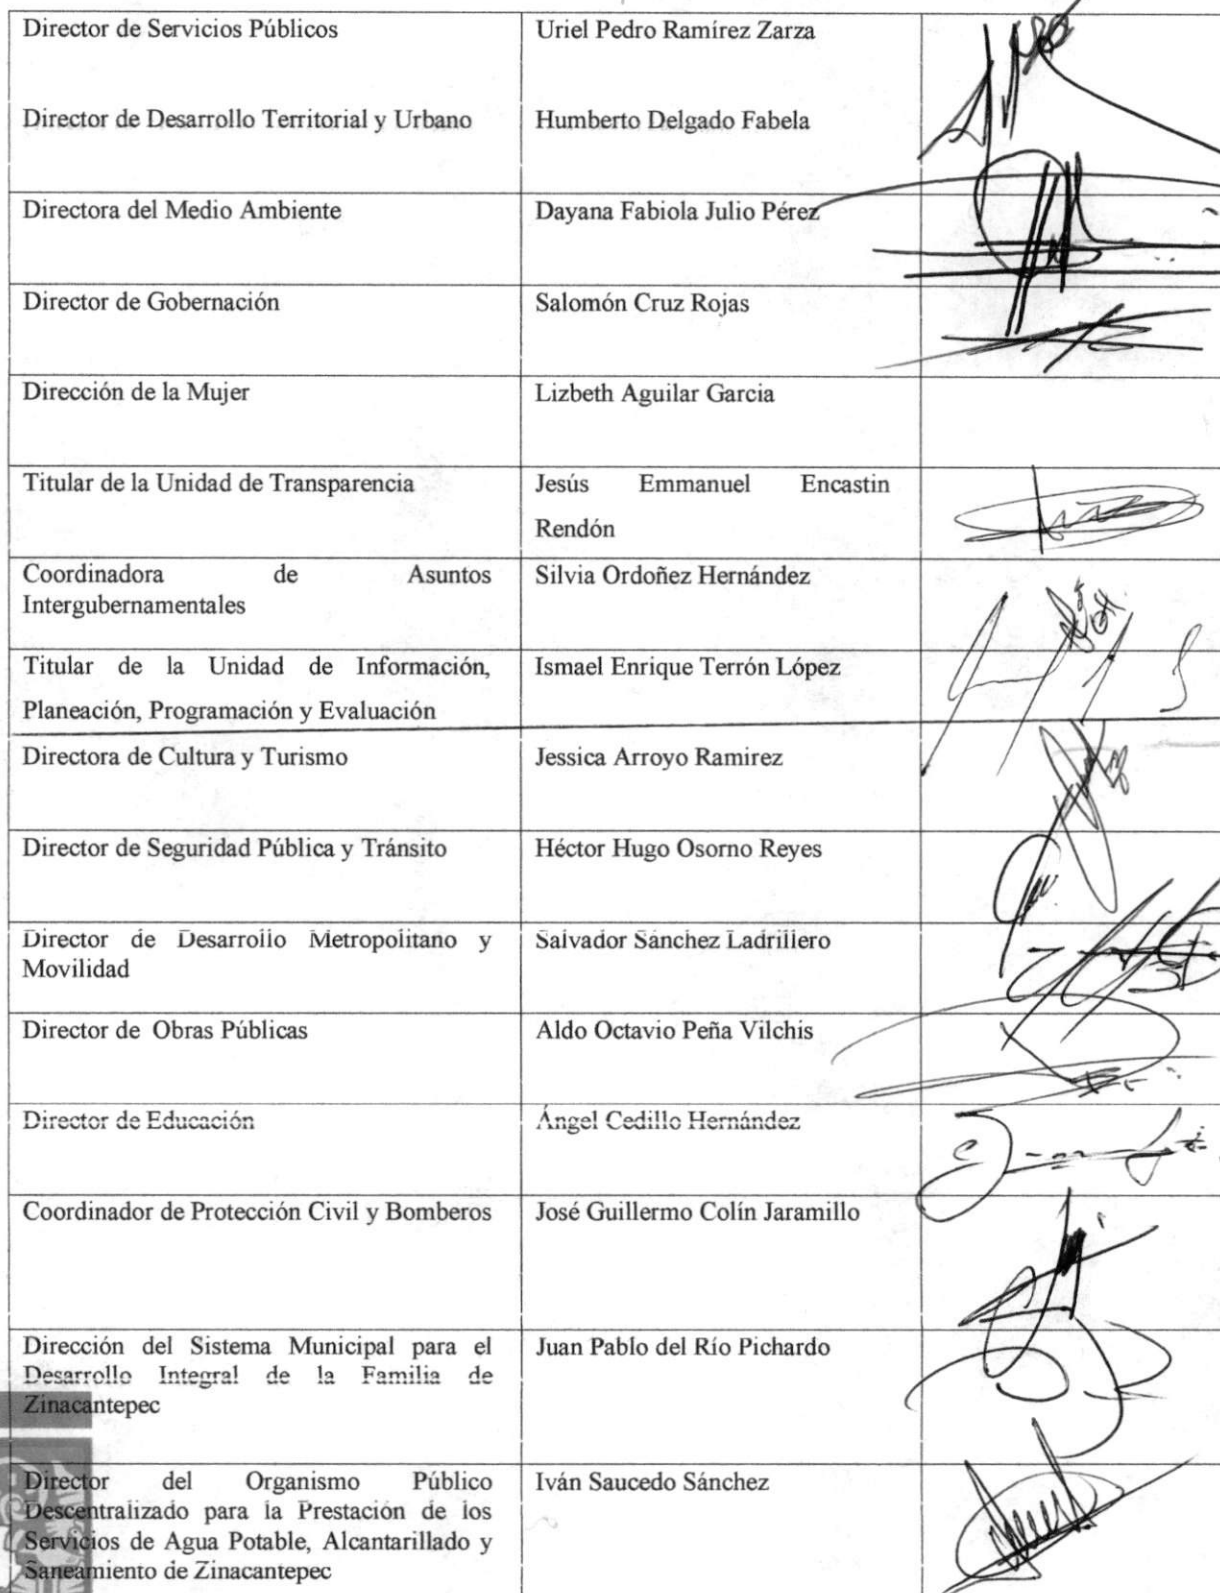 Director de Servicios Públicos Uriel Pedro Ramírez Zarza
Director de Desarrollo Territorial y Urbano Humberto Delgado Fabela
Directora del Medio Ambiente Dayana Fabiola Julio Pérez
Director de Gobernación Salomón Cruz Rojas
Dirección de la Mujer Lizbeth Aguilar Garcia
Titular de la Unidad de Transparencia Jesús Emmanuel Encastin
Rendón
Coordinadora de Asuntos Silvia Ordoñez Hernández
Intergubernamentales
Titular de la Unidad de Información, Ismael Enrique Terrón López
Planeación, Programación y Evaluación
Directora de Cultura y Turismo Jessica Arroyo Ramirez
Director de Seguridad Pública y Tránsito Héctor Hugo Osorno Reyes
Director de Desarrollo Metropolitano y Salvador Sánchez Ladrillero
Movilidad
Director de Obras Públicas Aldo Octavio Peña Vilchis
Director de Educación Ángel Cedillo Hernández
Coordinador de Protección Civil y Bomberos José Guillermo Colín Jaramillo
Dirección del Sistema Municipal para el Juan Pablo del Río Pichardo
Desarrollo Integral de la Familia de
Zinacantepec
Director del Organismo Público Iván Saucedo Sánchez
Descentralizado para la Prestación de los
Servicios de Agua Potable, Alcantarillado y
Saneamiento de Zinacantepec